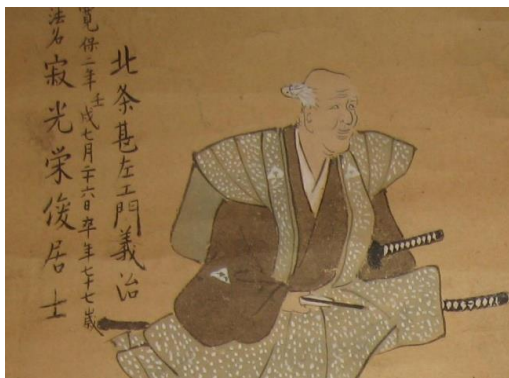 北条甚左エ門義治
寛保二年壬戌七月二十六日卒年七十七歳
法名 寂光栄俊居士